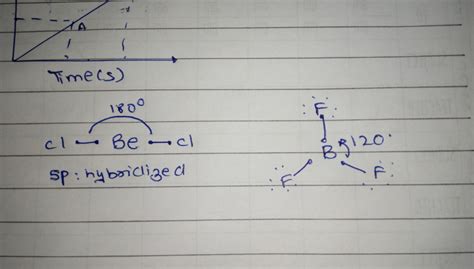 A
Time(s)
180°
Cl — Be — Cl
sp: hybridized
:F:
B 120°
:F:
:F: